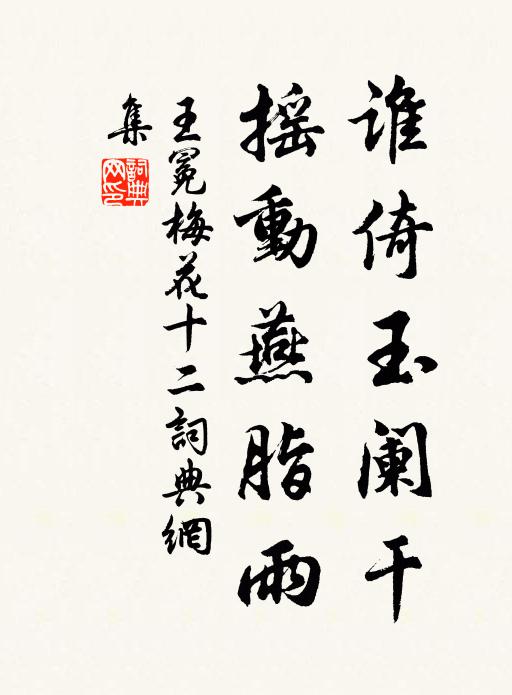 谁倚玉阑干
摇動燕脂雨
王冕梅花十二詞典網
集
詞典網印